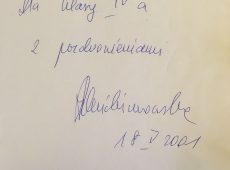 Dla klasy IV a
z pozdrowieniami
18 V 2001